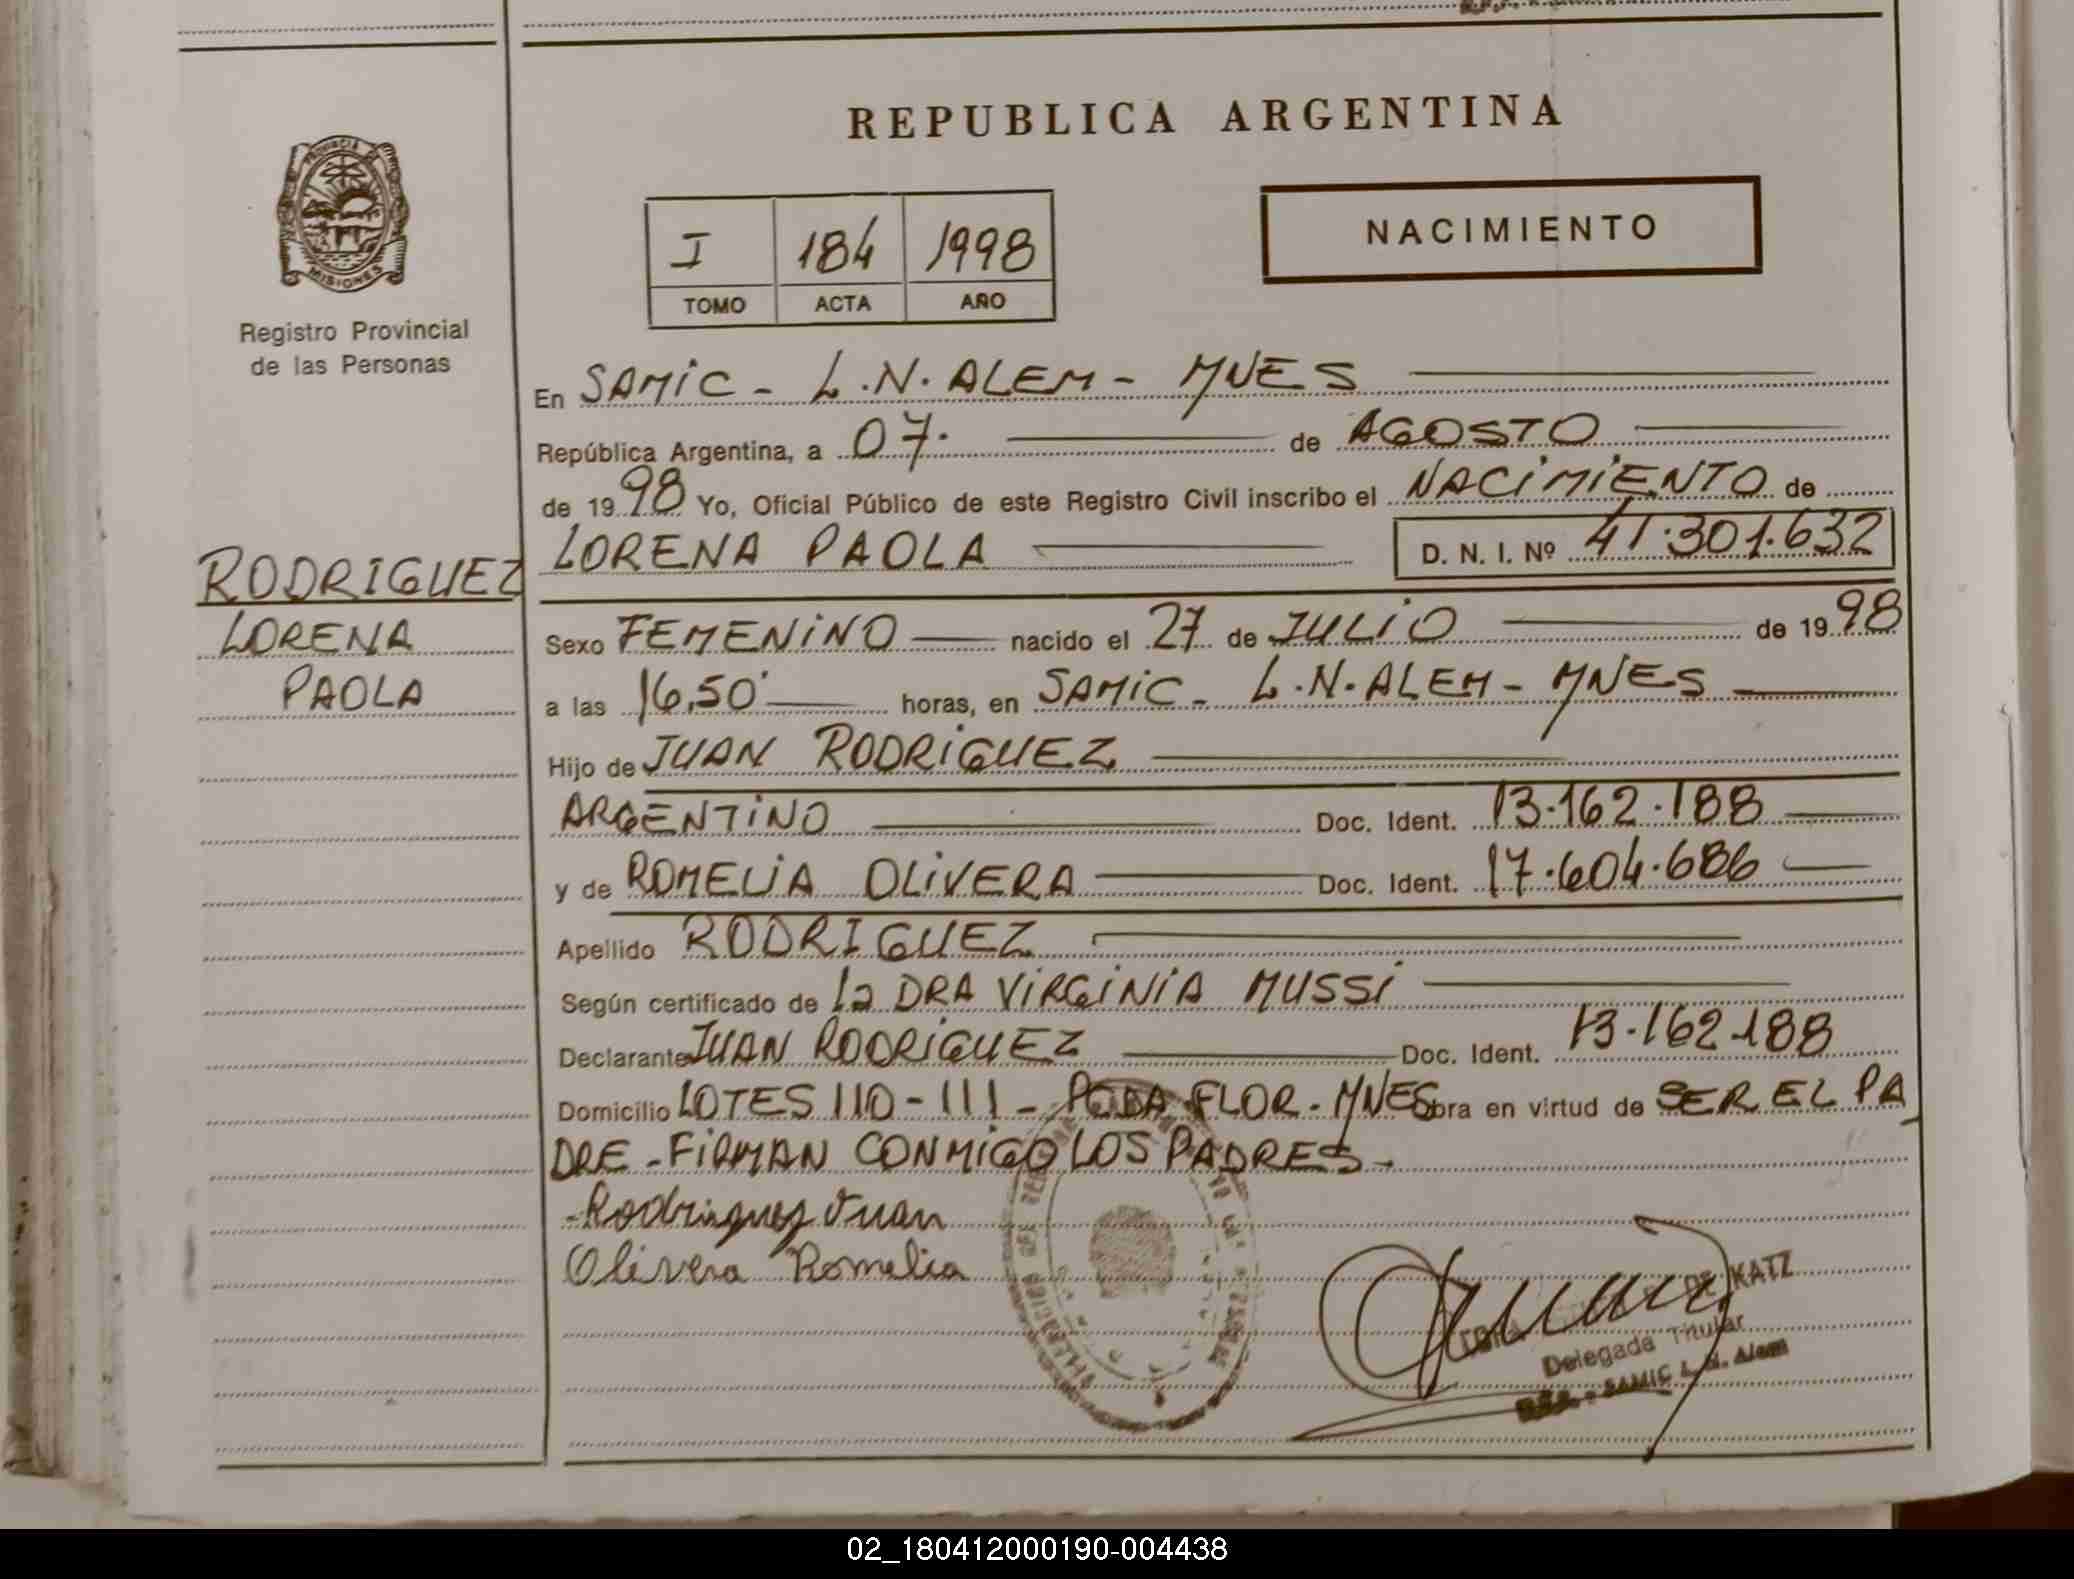 REPUBLICA ARGENTINA
PROVINCIA DE
MISIONES
Registro Provincial
de las Personas
I 184 1998
TOMO ACTA AÑO
NACIMIENTO
En SAMIC - L.N. ALEM - MNES
República Argentina, a 07. de AGOSTO
de 1998 Yo, Oficial Público de este Registro Civil inscribo el NACIMIENTO de
LORENA PAOLA D. N. I. Nº 41.301.632
RODRIGUEZ
LORENA
PAOLA
Sexo FEMENINO nacido el 27 de JULIO de 1998
a las 16,50' horas, en SAMIC - L.N. ALEM - MNES
Hijo de JUAN RODRIGUEZ
ARGENTINO Doc. Ident. 13.162.188
y de ROMELIA OLIVERA Doc. Ident. 17.604.686
Apellido RODRIGUEZ
Según certificado de La DRA VIRGINIA MUSSI
Declarante JUAN RODRIGUEZ Doc. Ident. 13.162.188
Domicilio LOTES 110 - 111 - PCDA FLOR - MNES Obra en virtud de SER EL PA
DRE - FIRMAN CONMIGO LOS PADRES -
Rodriguez Juan
Olivera Romelia
DE KATZ
Delegada Titular
SAMIC L. N. Alem
02_180412000190-004438